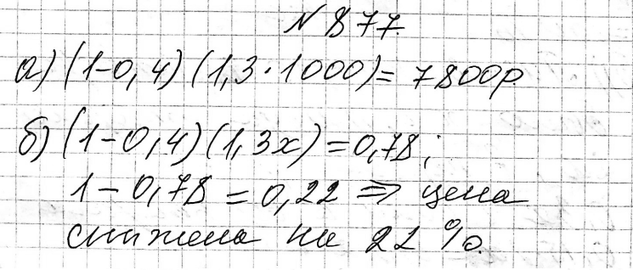 N 877.
а) (1-0,4) (1,3·1000) = 7800р
б) (1-0,4) (1,3x) = 0,78;
1-0,78 = 0,22 ⇒ цена
снижена на 22 %.